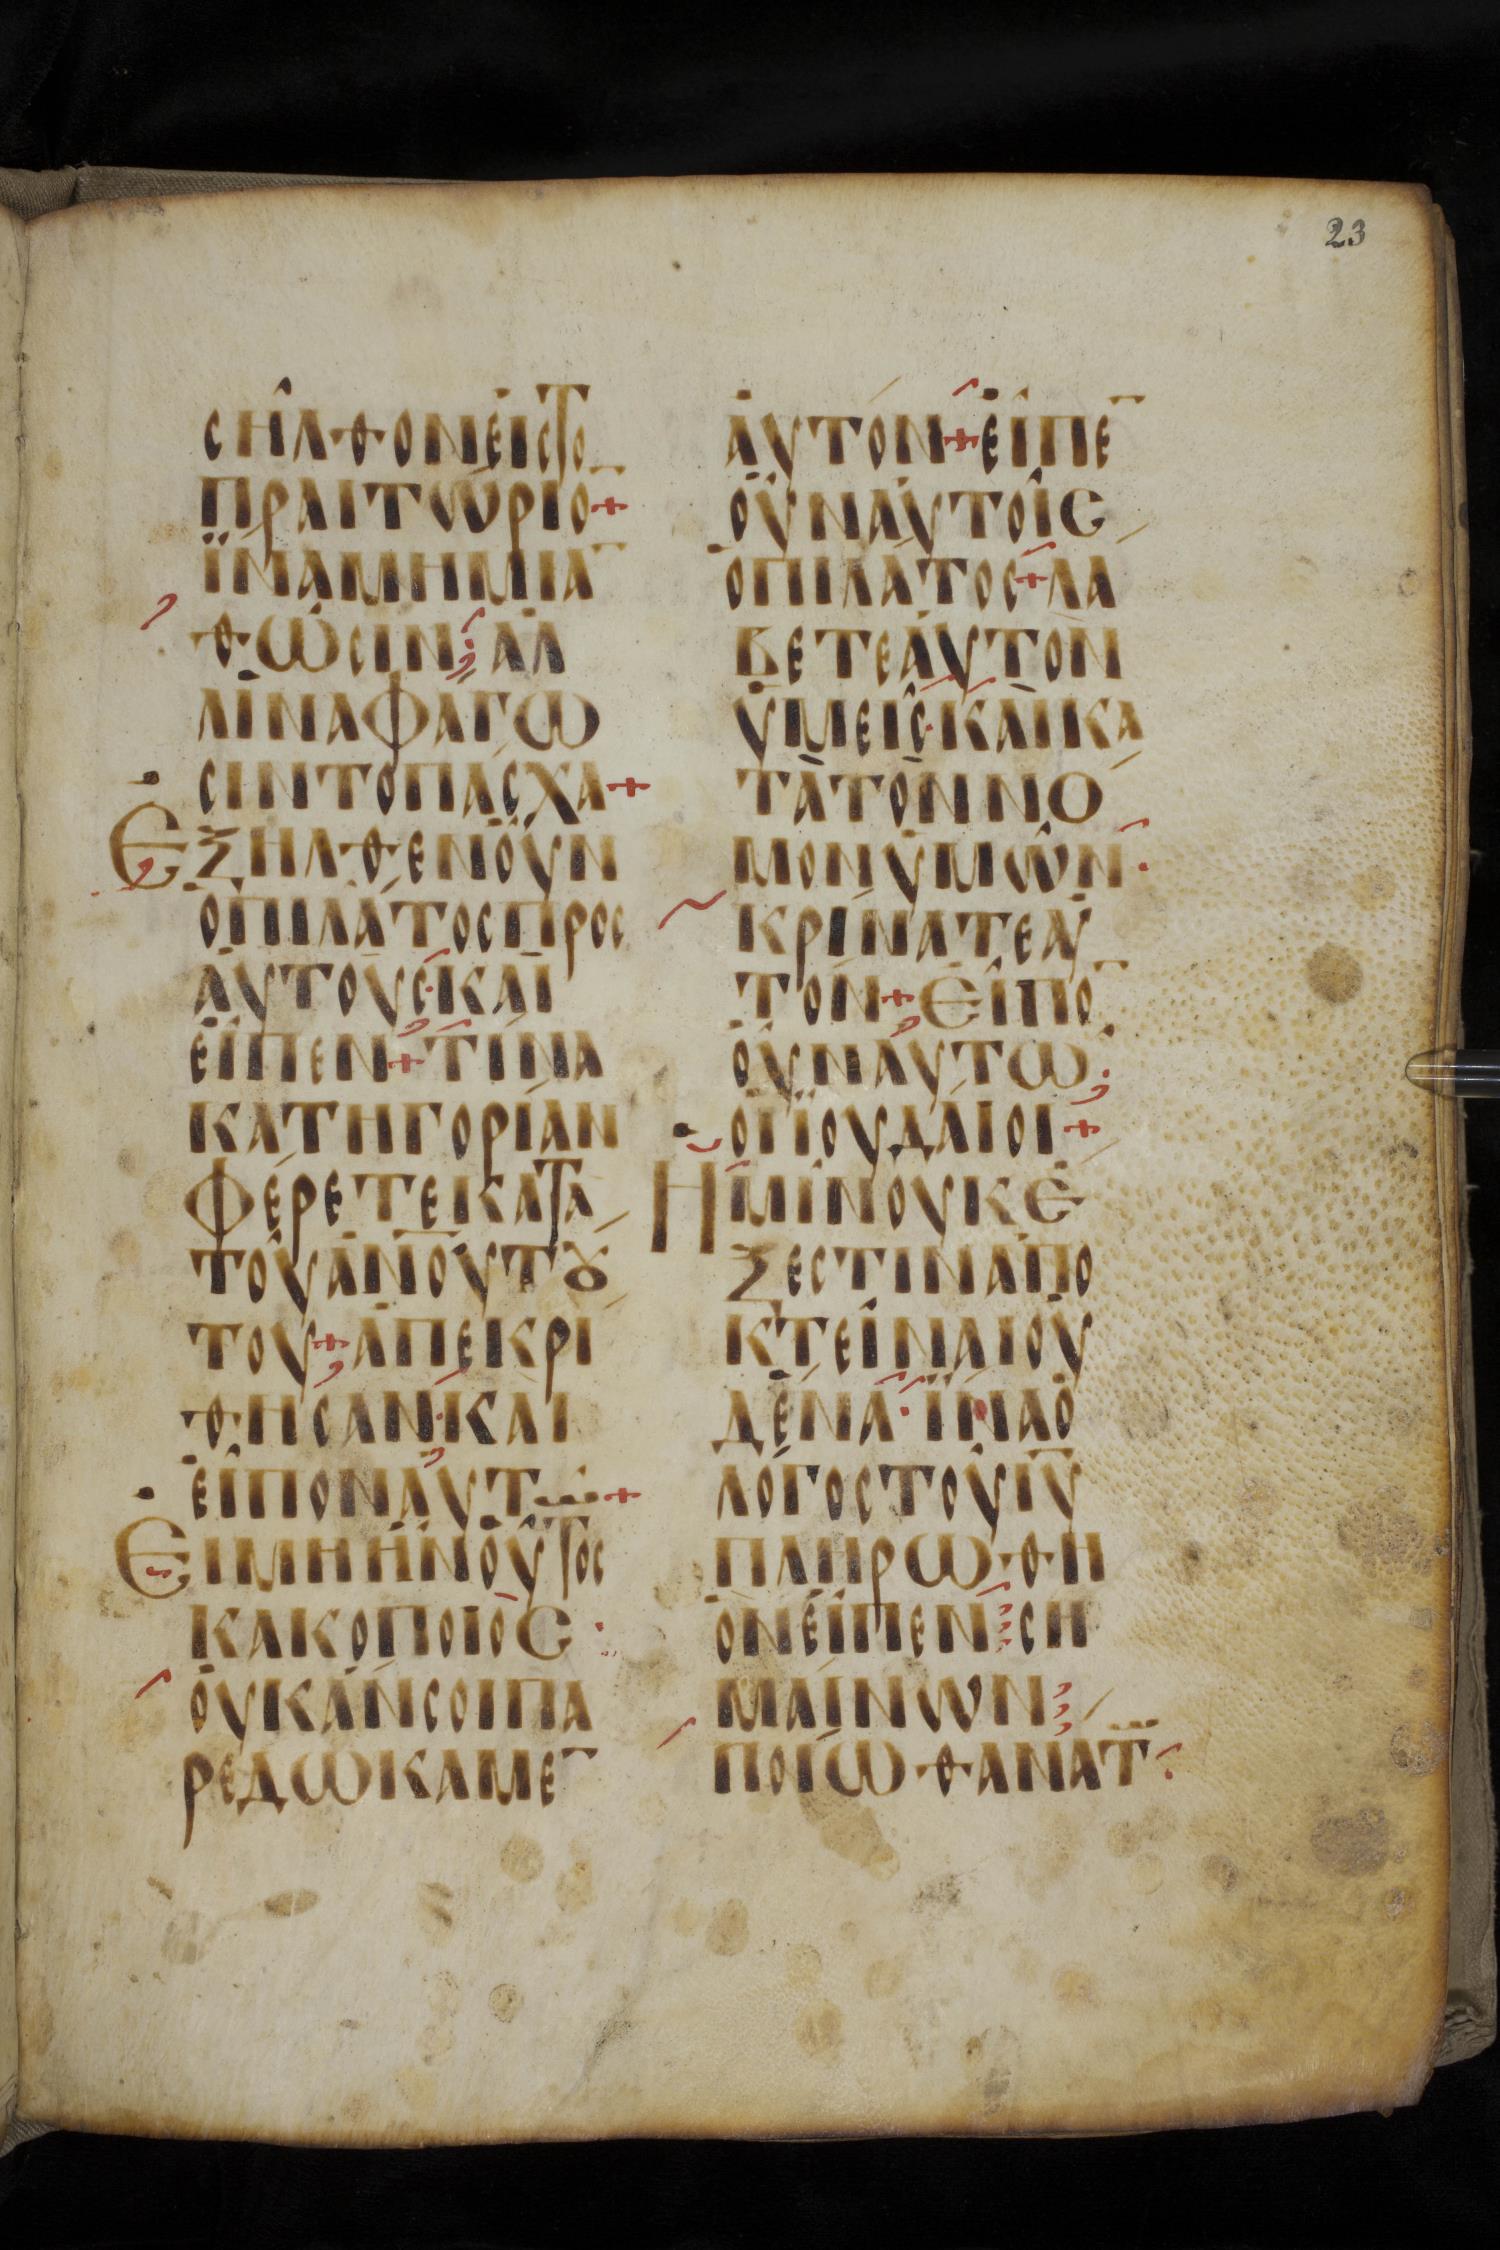 23
ϲῆλθονἐιϲτο
πραιτώριο¯+
ϊναμημια¯
θῶϲιν· ἀλ
λίναφάγω
ϲιντοπάϲχα+
Ἐξῆλθενὀῦν
ὁπιλᾶτοϲπροϲ
ἀυτοὺϲ·καὶ
ἐῖπεν+τίνα
κατηγορίαν
φέρετεκατα
τοῦἀν̅ο̅υτȣ́
του+ἀπεκρί
θηϲαν·καὶ
ἐῖπονἀυτω+
Ἐιμὴἦνὀῦτοϲ
κακοποιὸϲ·
ὀυκἄνϲοιπα
ρεδώκαμε¯
ἀυτόν+ἐῖπε¯
ὀῦναὐτοῖϲ
ὁπιλάτοϲ+λά
βετεἀυτὸν
ὑμεῖϲ·καὶκα
τὰτὸννό
μονὑμῶν·
κρίνατεἀυ
τόν+ἐῖπο¯
ὀῦναὐτω·
ὁιϊουδαῖοι+
Ἡμῖνουκἔ
ξεϲτιναπο
κτεῖναιοὐ
δένα·ϊναὁ
λόγοϲτοῦι̅υ̅
πληρωθῆ
ὃνἐῖπεν⁝ϲη
μαίνων⁝
ποίωθανάτ·